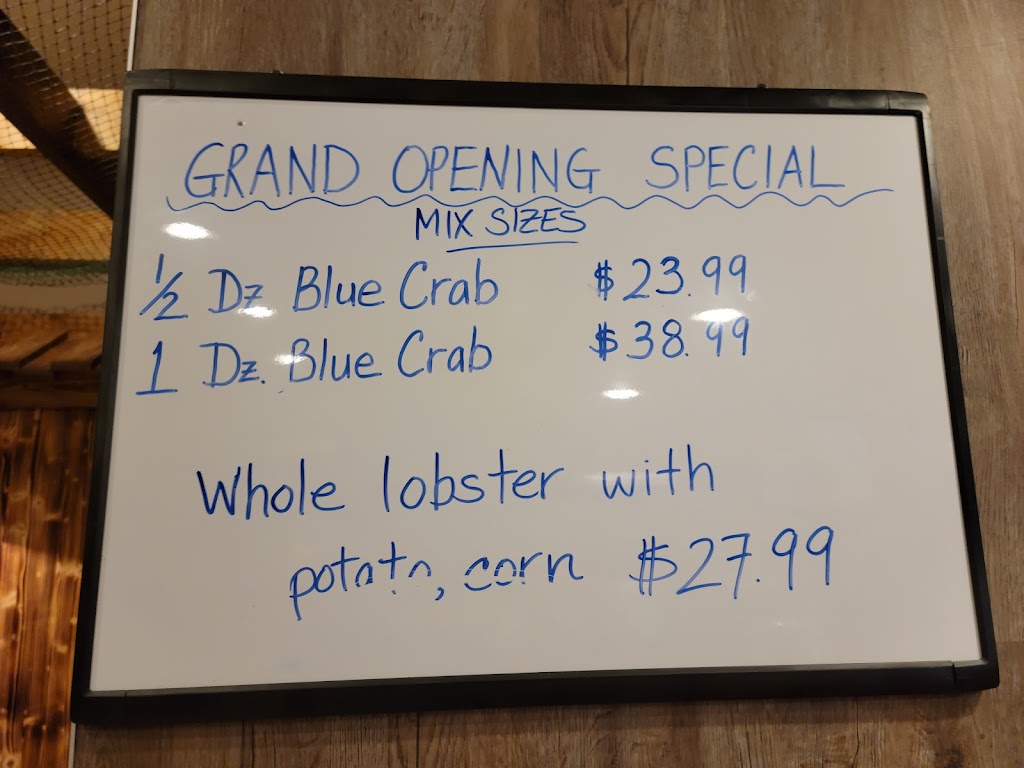 GRAND OPENING SPECIAL
MIX SIZES
1/2 Dz Blue Crab $23.99
1 Dz. Blue Crab $38.99
Whole lobster with
potato, corn $27.99